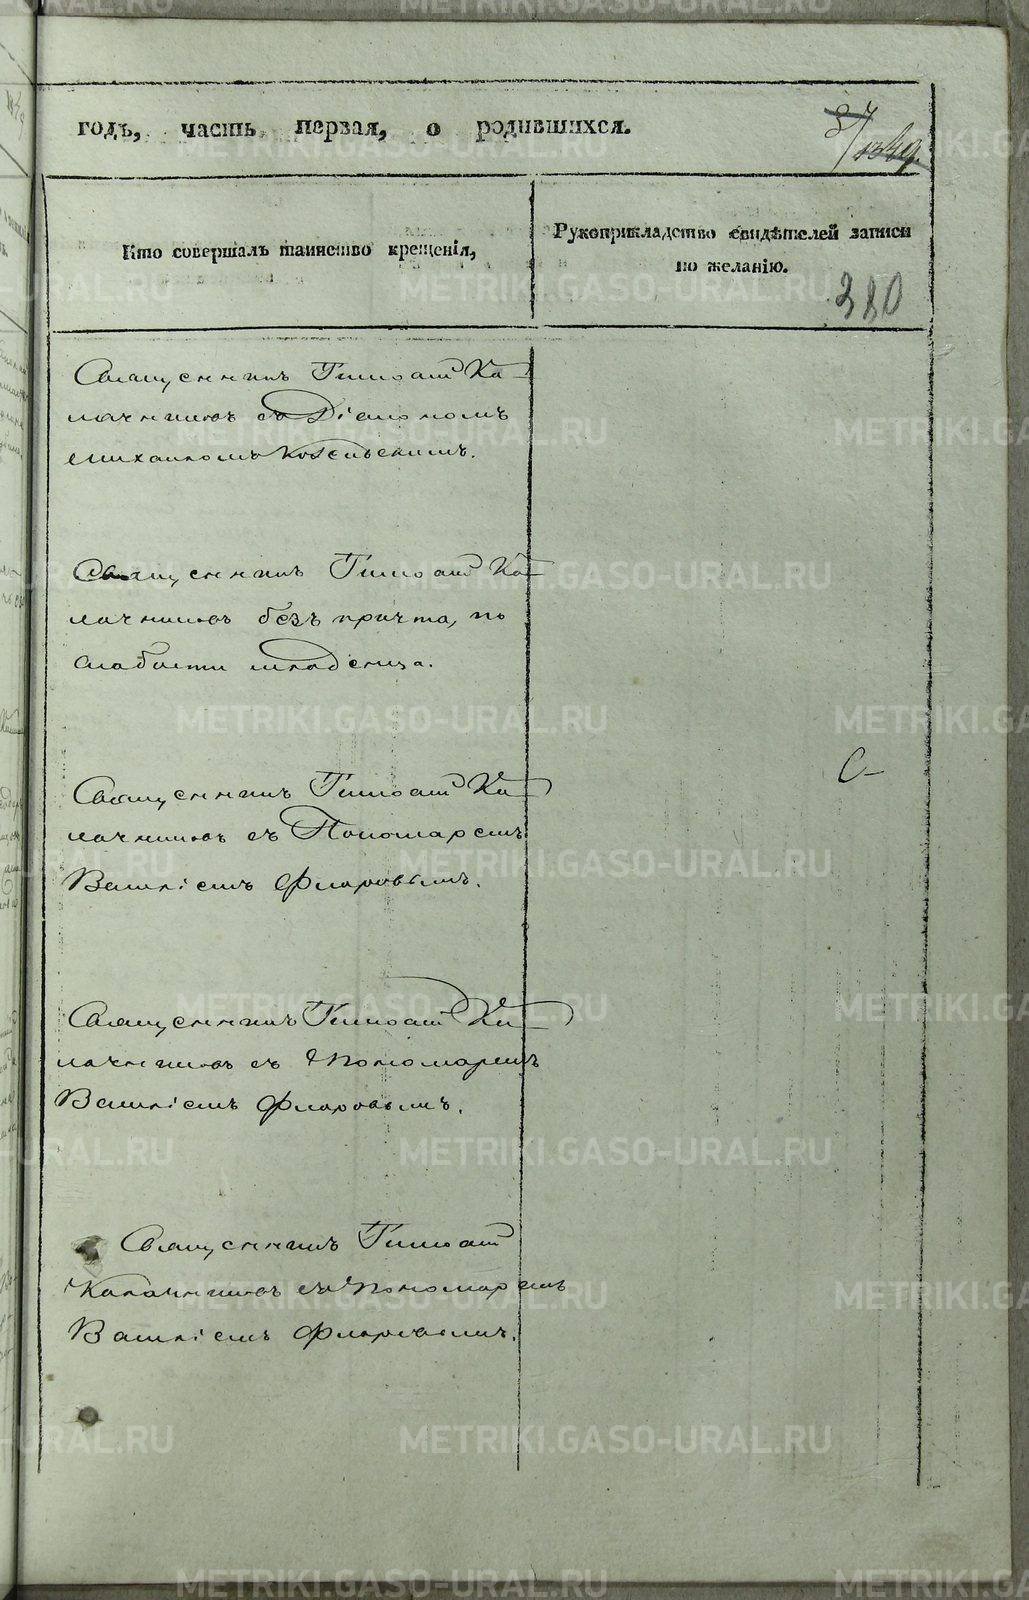 годъ, часть первая, о родившихся.
Кто совершалъ таинство крещенія,
Рукоприкладство свидѣтелей записи
по желанію.
380
Священникъ Тимоѳей Ка-
лачниковъ съ Діакономъ
Михаиломъ
Священникъ Тимоѳей Ка-
лачниковъ безъ причта, по
слабости младенца.
Священникъ Тимоѳей Ка-
лачниковъ съ Пономаремъ
Василіемъ Флоровымъ.
С-
Священникъ Тимоѳей Ка-
лачниковъ съ Пономаремъ
Василіемъ Флоровымъ.
Священникъ Тимоѳей
Калачниковъ съ Пономаремъ
Василіемъ Флоровымъ.
METRIKI.GASO-URAL.RU